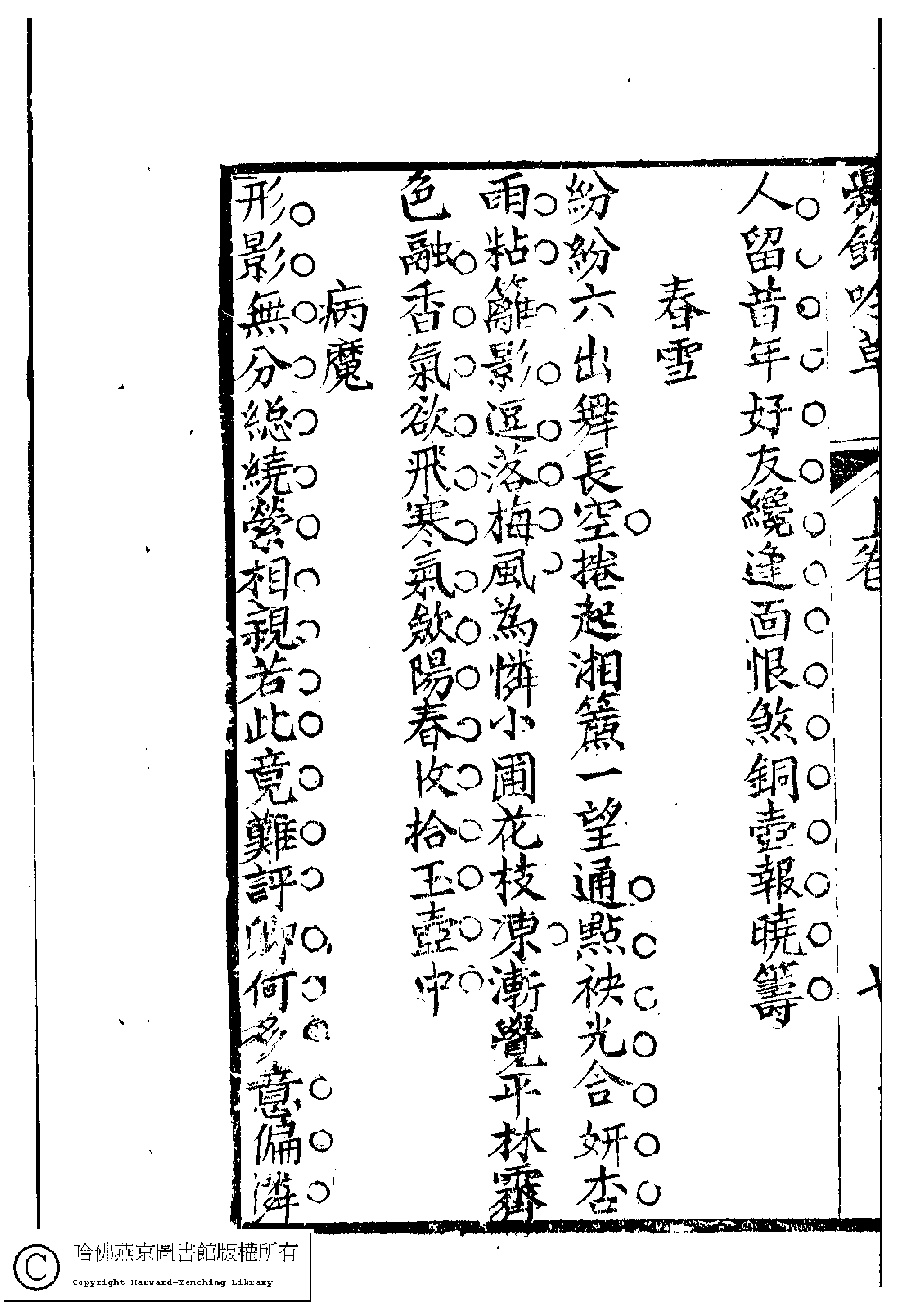 吟草
上卷
人留昔年好友纔逢面恨煞銅壺報曉籌
春雪
紛紛六出舞長空捲起湘簾一望通點袂光合妍杏
雨粘籬影逗落梅風為憐小圃花枝凍漸覺平林霽
色融香氣欲飛寒氣斂陽春收拾玉壺中
病魔
形影無分總繞縈相親若此竟難評卿何多意偏憐
哈佛燕京圖書館版權所有
Copyright Harvard-Yenching Library